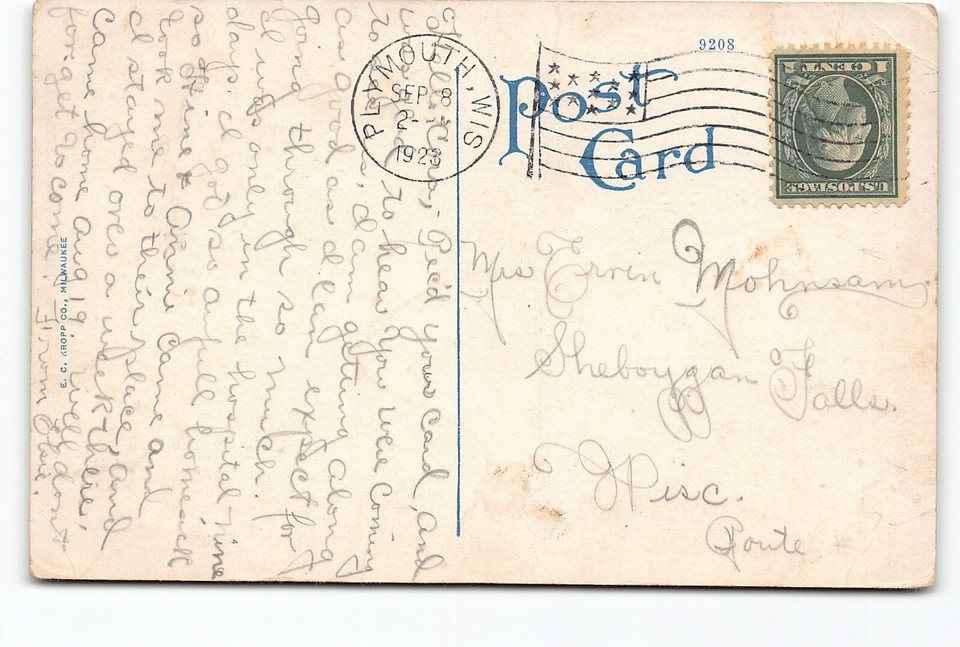 9208
Post
Card
PLYMOUTH, WIS
SEP 8
1923
1 CENT 1
U.S. POSTAGE
Mrs Ervin Mohnsam,
Sheboygan Falls.
Wisc.
Route #
Rec'd your card, and
to hear you were coming
as good as, I am getting along
as good as I can expect for
going through so much.
I was only in the hospital nine
days. I got so awful homesick
so Hine & Annie came and
took me to their place, and
I stayed over a week there,
came home Aug 19. Well don't
forget to come. From Elsie.
E. C. KROPP CO., MILWAUKEE